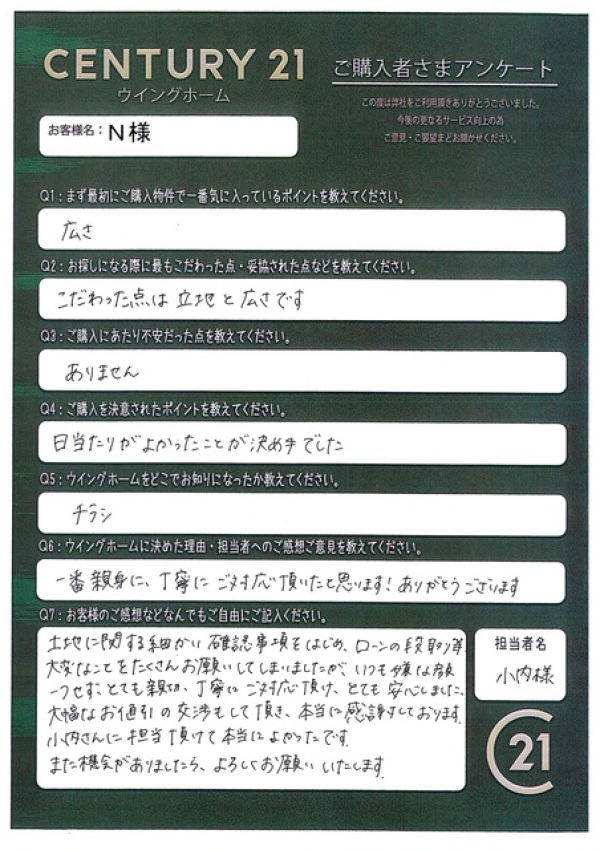 CENTURY 21
ウイングホーム
ご購入者さまアンケート
この度は弊社をご利用頂きありがとうございました。
今後の更なるサービス向上の為
ご意見・ご要望をお聞かせください。
お客様名：N様
Q1：まず最初にご購入物件で一番気に入っているポイントを教えてください。
広さ
Q2：お探しになる際に最もこだわった点・妥協された点などを教えてください。
こだわった点は立地と広さです
Q3：ご購入にあたり不安だった点を教えてください。
ありません
Q4：ご購入を決意されたポイントを教えてください。
日当たりがよかったことが決め手でした
Q5：ウイングホームをどこでお知りになったか教えてください。
チラシ
Q6：ウイングホームに決めた理由・担当者へのご感想ご意見を教えてください。
一番親身に、丁寧にご対応頂いたと思います！ありがとうございます
Q7：お客様のご感想などなんでもご自由にご記入ください。
土地に関する細かい確認事項をはじめ、ローンの段取り等
大変なことをたくさんお願いしてしまいましたが、いつも嫌な顔
一つせず、とても親切、丁寧にご対応頂け、とても安心しました。
大幅なお値引の交渉もして頂き、本当に感謝しております。
小内さんに担当頂けて本当によかったです。
また機会がありましたら、よろしくお願いいたします。
担当者名
小内様
C21